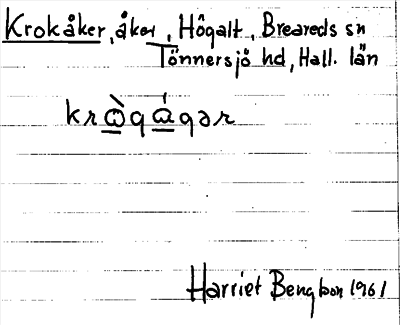 Krokåker, åker, Högalt, Breareds sn
Tönnersjö hd, Hall. län
krὼqágər
Harriet Bengtson 1961